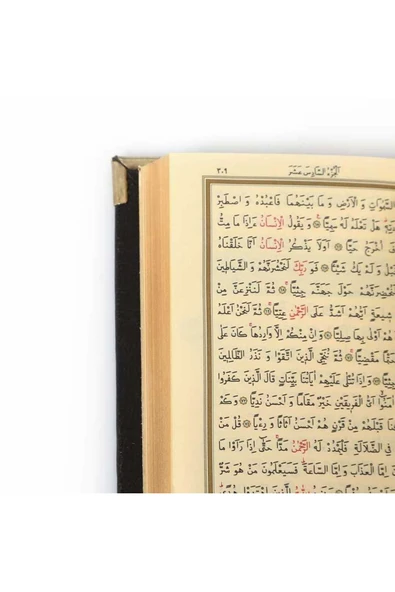 ٣٠٩ اَلْجُزْءُ السَّادِسَ عَشَرَ
السَّمٰوَاتِ وَ الْاَرْضِ وَ مَا بَيْنَهُمَا فَاعْبُدْهُ وَ اصْطَبِرْ
هَلْ تَعْلَمُ لَهُ سَمِيًّا وَ يَقُولُ الْاِنْسَانُ ءَ اِذَا مَا مِتُّ
اُخْرَجُ حَيًّا اَوَلَا يَذْكُرُ الْاِنْسَانُ اَنَّا خَلَقْنَاهُ
وَ لَمْ يَكُ شَيْئًا فَوَ رَبِّكَ لَنَحْشُرَنَّهُمْ وَ الشَّيَاطِينَ
لَنُحْضِرَنَّهُمْ حَوْلَ جَهَنَّمَ جِثِيًّا ثُمَّ لَنَنْزِعَنَّ مِنْ
شِيعَةٍ اَيُّهُمْ اَشَدُّ عَلَى الرَّحْمٰنِ عِتِيًّا ثُمَّ لَنَحْنُ اَعْلَمُ
هُمْ اَوْلٰى بِهَا صِلِيًّا وَ اِنْ مِنْكُمْ اِلَّا وَارِدُهَا كَانَ عَلٰى
حَتْمًا مَقْضِيًّا ثُمَّ نُنَجِّي الَّذِينَ اتَّقَوْا وَ نَذَرُ الظَّالِمِينَ
وَ اِذَا تُتْلٰى عَلَيْهِمْ اٰيَاتُنَا بَيِّنَاتٍ قَالَ الَّذِينَ كَفَرُوا
اٰمَنُوا اَيُّ الْفَرِيقَيْنِ خَيْرٌ مَقَامًا وَ اَحْسَنُ نَدِيًّا وَ كَمْ
قَبْلَهُمْ مِنْ قَرْنٍ هُمْ اَحْسَنُ اَثَاثًا وَ رِءْيًا قُلْ مَنْ
فِي الضَّلَالَةِ فَلْيَمْدُدْ لَهُ الرَّحْمٰنُ مَدًّا حَتّٰى اِذَا رَاَوْا مَا
اِمَّا الْعَذَابَ وَ اِمَّا السَّاعَةَ فَسَيَعْلَمُونَ مَنْ هُوَ شَرٌّ